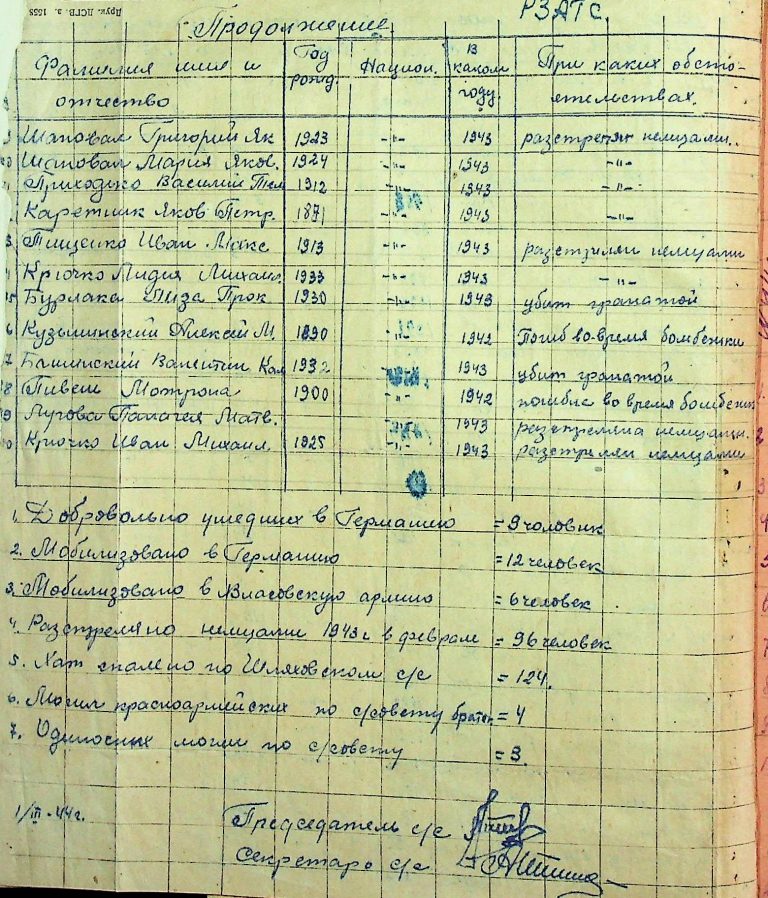 Друк. ЛСГВ. а. 1558
РЗАТС.
Продолжение
Фамилия имя и отчество | Год рожд. | Национ. | В каком году | При каких обсто-ятельствах.
9 Шаповал Григорий Як | 1923 | -"- | 1943 | разстрелян немцами.
10 Шаповал Мария Яков. | 1924 | -"- | 1943 | -"-
11 Приходько Василий | 1912 | -"- | 1943 | -"-
Каретник Яков Петр. | 1871 | -"- | 1943 | -"-
3 Тищенко Иван Макс | 1913 | -"- | 1943 | разстрелян немцами
Крючко Лидия Михаил. | 1933 | -"- | 1943 | -"-
15 Бурлака Лиза Прок | 1930 | -"- | 1943 | убит гранатой
6 Кузьминский Алексей М. | 1890 | -"- | 1942 | Погиб во-время бомбежки
7 Валентин | 1932 | -"- | 1943 | убит гранатой
18 Пивень Мотрона | 1900 | -"- | 1942 | погибла во время бомбежки
19 Лугова Палагея Матв. | -"- | 1943 | разстреляна немцами.
20 Крючко Иван Михаил. | 1925 | -"- | 1943 | разстрелян немцами
1. Добровольно ушедших в Германию = 9 человик
2. Мобилизовано в Германию = 12 человек
3. Мобилизовано в Власовскую армию = 6 человек
4. Разстреляно немцами 1943 г в феврале = 96 человек
5. Хат спалено по Шляховском с/с = 124.
6. Могил красноармейских по с/совету братск = 4
7. Одиносных могил по с/совету = 3.
1/III-44 г.
Председатель с/с
Секретарь с/с